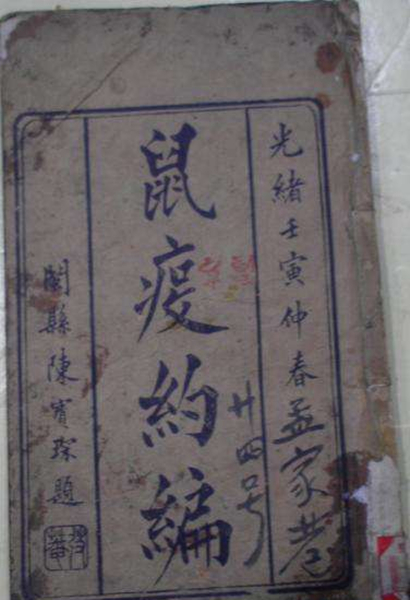 光緒壬寅仲春孟家巷
廿四号
鼠疫約編
閩縣陳寶琛題